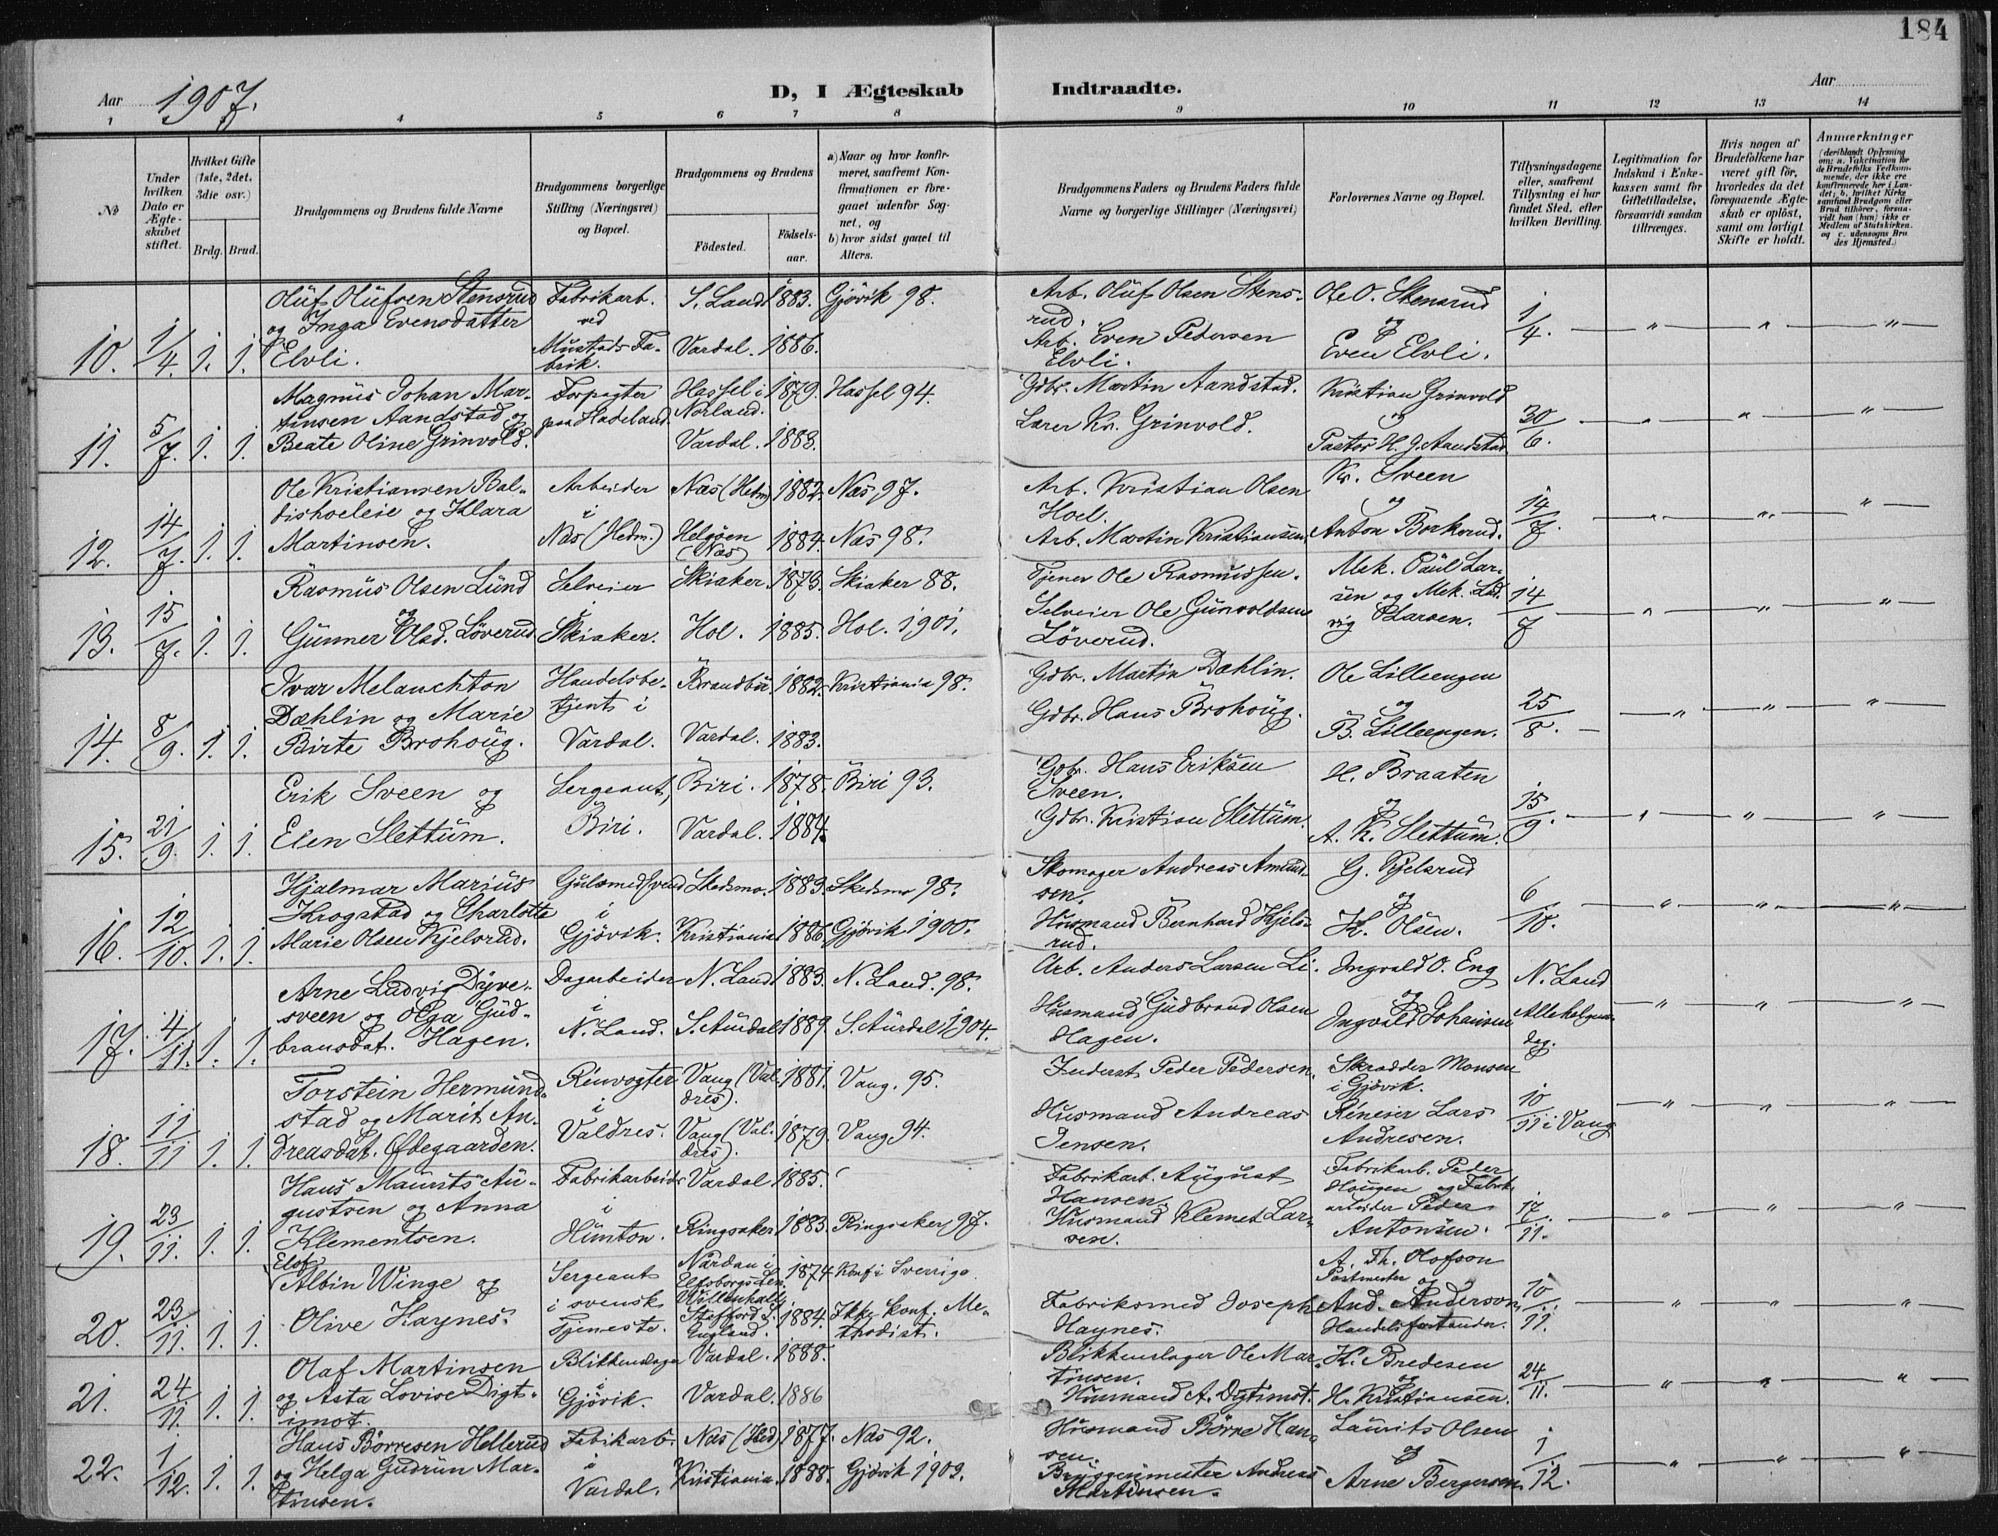 184
Aar 1907.
D, I Ægteskab Indtraadte.
Aar
1 4 5 6 7 8 9 10 11 12 13 14
№
Under hvilken Dato er Ægteskabet stiftet.
Hvilket Gifte (1ste, 2det, 3die osv.)
Brdg. Brud.
Brudgommens og Brudens fulde Navne
Brudgommens borgerlige Stilling (Næringsvei) og Bopæl.
Brudgommens og Brudens
Fødested.
Fødselsaar.
a) Naar og hvor konfirmeret, saafremt Konfirmationen er foregaaet udenfor Sognet, og
b) hvor sidst gaaet til Alters.
Brudgommens Faders og Brudens Faders fulde Navne og borgerlige Stillinger (Næringsvei)
Forlovernes Navne og Bopæl.
Tillysningsdagene eller, saafremt Tillysning ei har fundet Sted, efter hvilken Bevilling.
Legitimation for Indskud i Enkekassen samt for Giftetilladelse, forsaavidt saadan tiltrænges.
Hvis nogen af Brudefolkene har været gift før, hvorledes da det foregaaende Ægteskab er opløst, samt om lovligt Skifte er holdt.
Anmærkninger
10. 1/4 1. 1. Oluf Olufsen Stensrud og Inga Evensdatter Elvli. Fabrikarb. ved Mustads Fabrik. S. Land 1883. Gjøvik 98. Vardal. 1886. Arb. Oluf Olsen Stensrud. Arb. Even Pedersen Elvli. Ole O. Stensrud og Even Elvli. 1/4.
11. 5/7. 1. 1. Magnus Johan Martinsen Aandstad og Beate Oline Grinvold. Forpagter paa Hadeland. Hassel i Norland. 1879. Hassel 94. Vardal. 1888. Gdbr. Martin Aandstad. Lærer Kr. Grinvold. Kristian Grinvold og Pastor H. J. Aandstad 30/6.
12. 14/7. 1. 1. Ole Kristiansen Baldishoeleie og Klara Martinsen. Arbeider i Næs (Hedm.) Næs (Hedm) 1882. Næs 97. Helgøen (Næs) 1884. Næs 98. Arb. Kristian Olsen Hoel. Arb. Martin Kristiansen. Kr. Sveen og Anton Borkerud. 14/7
13. 15/7. 1. 1. Rasmus Olsen Lund og Gunner Olsd. Løverud Selveier i Skiaker. Skiaker. 1873. Skiaker 88. Hol. 1885. Hol. 1901. Tjener Ole Rasmussen. Selveier Ole Gunvoldsen Løverud. Mek. Paul Larsen og Mek. Ludvig Larsen. 14/7
14. 8/9. 1. 1. Ivar Melanchton Dæhlin og Marie Birte Brohoug. Handelsbetjent i Vardal. Brandbu 1882. Kristiania 98. Vardal. 1883. Gdbr. Martin Dæhlin. Gdbr. Hans Brohoug. Ole Lilleengen og B. Lilleengen. 25/8.
15. 21/9. 1. 1. Erik Sveen og Elen Slettum. Sergeant, Biri. Biri. 1878. Biri 93. Vardal. 1884. Gdbr. Hans Eriksen Sveen. Gdbr. Kristian Slettum. H. Braaten og A. K. Slettum. 15/9.
16. 12/10. 1. 1. Hjalmar Marius Krogstad og Charlotte Marie Olsen Kjelsrud. Gulsmedsvend i Gjøvik. Skedsmo. 1883. Skedsmo 98. Kristiania 1886. Gjøvik 1900. Skomager Andreas Amundsen. Husmand Bernhard Kjelsrud. G. Kjelsrud og K. Olsen. 6/10.
17. 4/11. 1. 1. Arne Ludvig Dyvesveen og Olga Gudbransdat. Hagen. Dagarbeider i N. Land. N. Land 1883. N. Land. 98. S. Aurdal 1889. S. Aurdal 1904. Arb. Anders Larsen Li. Husmand Gudbrand Olsen Hagen. Ingvald O. Eng og Ingvald Johansen N. Land Allehelgensdag.
18. 11/11 1. 1. Torstein Hermundstad og Marit Andreasdat. Ødegaarden. Renvogter i Valdres. Vang (Valdres). 1881. Vang. 95. Vang (Valdres). 1879. Vang 94. Inderst Peder Pedersen. Husmand Andreas Jensen. Skrædder Monsen i Gjøvik. Reneier Lars Andresen. 10/11 i Vang
19. 23/11. 1. 1. Hans Maurits Augustsen og Anna Klementsen. Fabrikarbeider i Hunton. Vardal 1885. Ringsaker 1883. Ringsaker 97. Fabrikarb. August Hansen. Husmand Klemet Larsen. Fabrikarb. Peder Haugen og Fabrikarbeider Peder Antonsen. 17/11.
20. 23/11. 1. 1. Elof Albin Winge og Olive Haynes. Sergeant i svensk Tjeneste. Nårdan i Elfsborgs Len. 1874 Konf. i Sverrige. Willenhall Stafford England. 1884. Ikke konf. Methodist. Fabriksmed Joseph Haynes. A. Th. Olofson Postmester og And. Anderson Handelsforstander. 10/11.
21. 24/11. 1. 1. Olaf Martinsen og Asta Lovise Digtimot. Blikkenslager i Gjøvik. Vardal. 1888. Vardal. 1886 Blikkenslager Ole Martinsen. Husmand A. Digtimot. K. Bredesen og H. Kristiansen. 24/11.
22. 1/12. 1. 1. Hans Børresen Hellerud og Helga Gudrun Martinsen. Fabrikarb. i Vardal. Næs (Hed) 1877. Næs 92. Kristiania. 1888. Gjøvik 1902. Husmand Børre Hansen. Brygger­mester Andreas Martinsen. Laurits Olsen og Arne Bergersen 1/12.